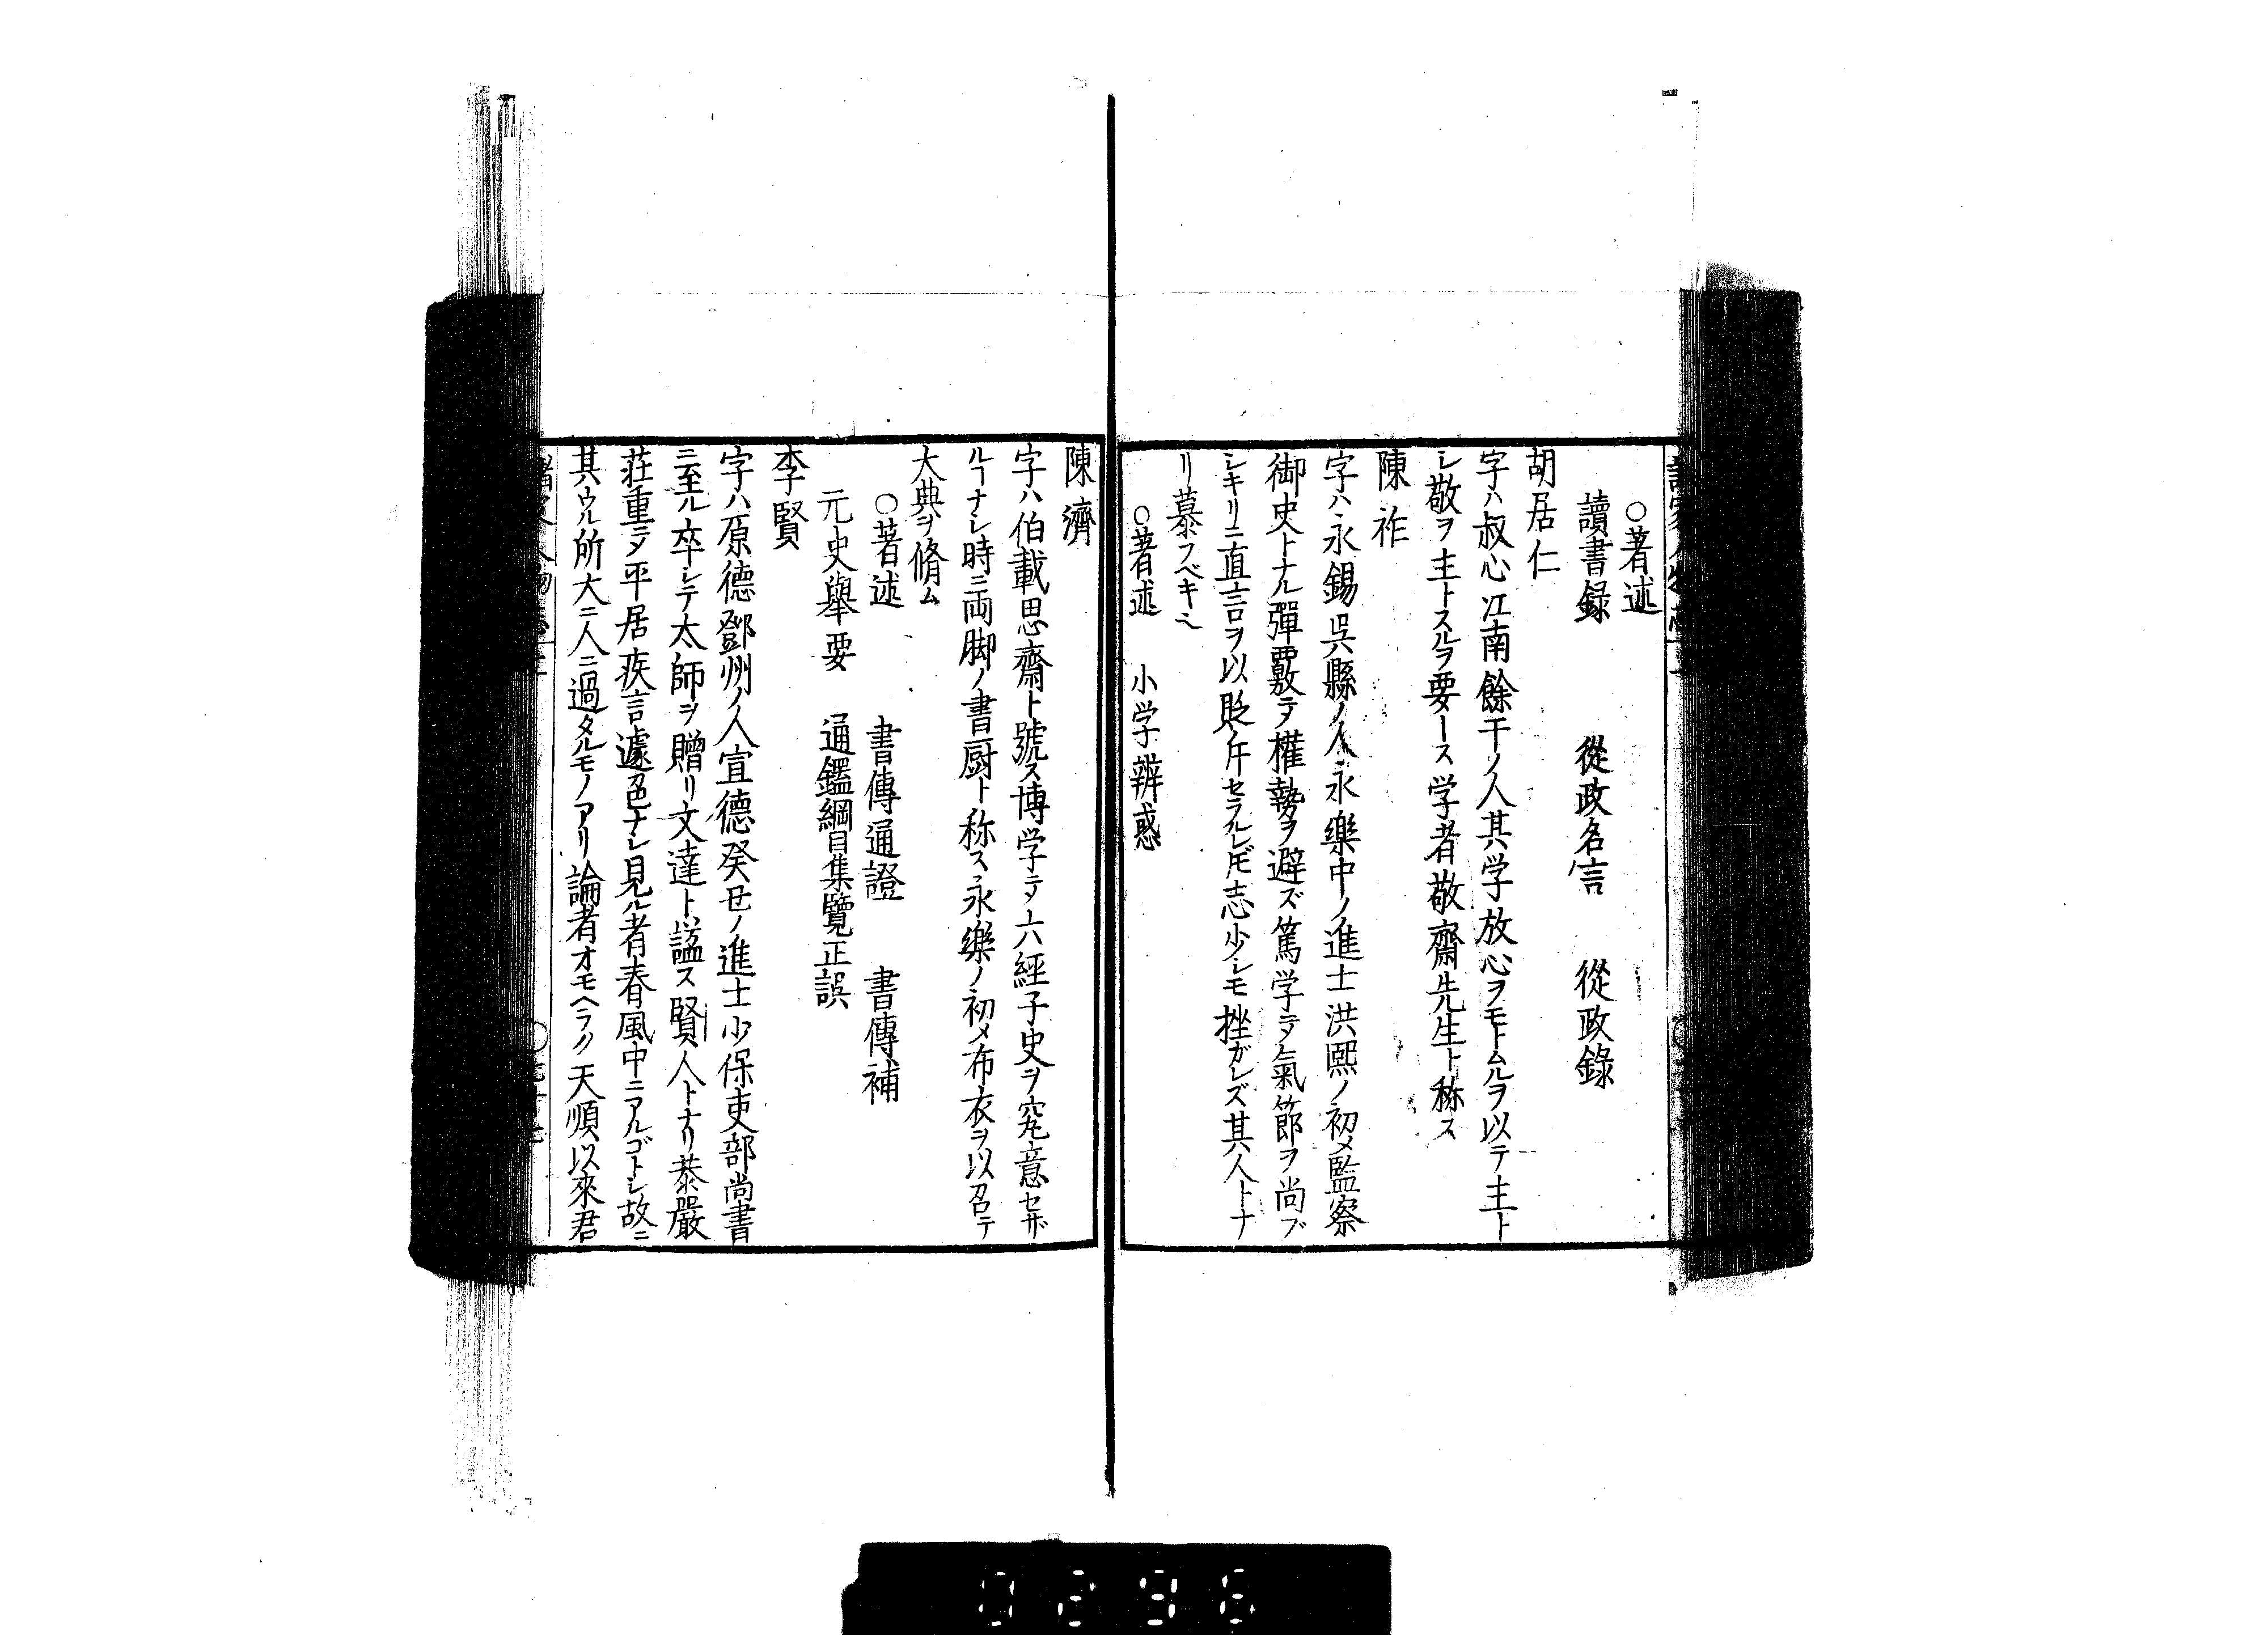 ○著述
讀書録 從政名言 從政錄
胡居仁
字ハ叔心江南餘干ノ人其学放心ヲモトムルヲ以テ主ト
シ敬ヲ主トスルヲ要トス学者敬齋先生ト称ス
陳祚
字ハ永錫呉縣ノ人永樂中ノ進士洪熈ノ初メ監察
御史トナル彈覈〆権勢ヲ避ズ篤学〆氣節ヲ尚ブ
シキリニ直言ヲ以貶斥セラルレ𪜈志少シモ挫ガレズ其人トナ
リ慕フベキミ
○著述 小学辨惑
陳濟
字ハ伯載思齋ト號ス博学〆六經子史ヲ究意セザ
ルヿナシ時ニ両脚ノ書厨ト称ス永樂ノ初メ布衣ヲ以召テ
大典ヲ脩ム
○著述 書傳通證 書傳補
元史舉要 通鑑綱目集覽正誤
李賢
字ハ原德鄧州ノ人宣德癸丑ノ進士少保吏部尚書
ニ至ル卒シテ太師ヲ贈リ文達ト謚ス賢人トナリ恭嚴
莊重ニ〆平居疾言遽色ナシ見ル者春風中ニアルゴトシ故ニ
其ウル所大ニ人ニ過タルモノアリ論者オモヘラク天順以來君